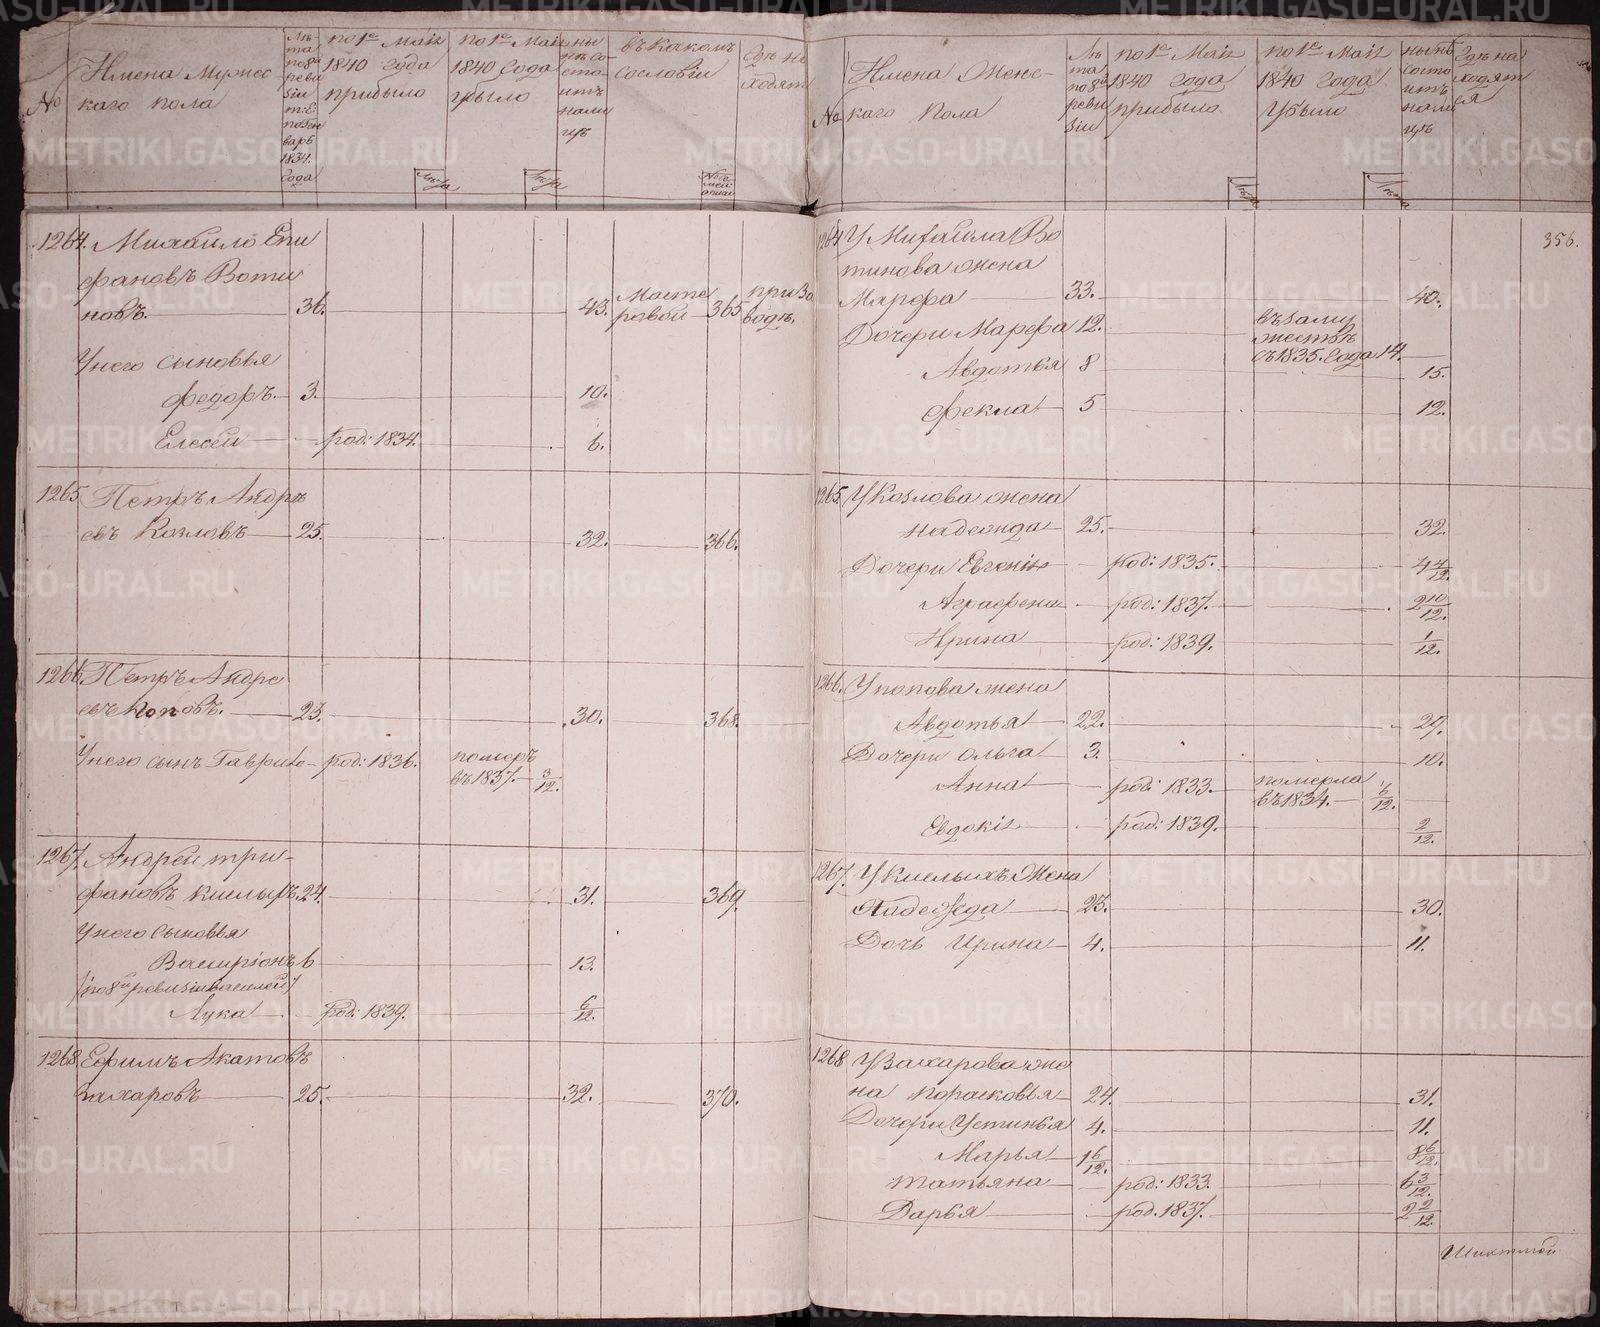 №
Имена Мужес
каго пола
Лѣ
та
по 8й
реви
зіи
1834.
года
по 1е Маія
1840 года
прибыло
Лѣта
по 1е Маія
1840 года
убыло
Лѣта
ны
нѣ со
сто
итъ
нали
цѣ
въ какомъ
сословіи
№ се
мей:
описи
Гдѣ на
ходят
1264. Михайло Епи
фановъ Воти
новъ. 36. 43. Масте
ровой 365 при За
водѣ.
У него сыновья
федоръ. 3. 10.
Елесей род: 1834. 6.
1265 Петръ Андре
евъ Козловъ 25. 32. 366.
1266 Петръ Андре
евъ Поповъ. 23. 30. 368.
У него сынъ Гаврило род: 1836. померъ
въ 1837. 3/12.
1267. Андрей три-
фановъ кислыхъ. 24. 31. 369.
У него сыновья
6 13.
по 8й ревизіи василей
Лука род: 1839. 6/12.
1268. Ефимъ Акатовъ
захаровъ 25. 32. 370.
№
Имена Женс-
каго пола
Лѣ
та
по 8й
реви
зіи
по 1е Маія
1840 года
прибыло
Лѣта
по 1е Маія
1840 года
убыло
Лѣта
нынѣ
состо
итъ
нали
цѣ
Гдѣ на
ходят
ся
356.
1264 У Михайла Во
тинова жена
Марфа 33. 40.
Дочери Марфа 12. въ заму
жествѣ
съ 1835. года 14.
Авдотья 8 15.
фекла 5 12.
1265. У Козлова жена
надежда 25. 32.
Дочери Евгенія род: 1835. 4 4/12.
Аграфена род: 1837. 2 10/12.
Ирина род: 1839. 1/12.
1266. У попова жена
Авдотья 22. 29.
Дочери Ольга 3. 10.
Анна род: 1833. померла
въ 1834. 6/12.
Евдокія род: 1839. 2/12.
1267. У кислыхъ Жена
Надежда 23. 30.
Дочь Ирина 4. 11.
1268 У Захарова же
на порасковья 24. 31.
Дочери Устинья 4. 11.
Марья 1 6/12. 8 6/12.
татьяна род: 1833. 6 3/12.
Дарья род. 1837. 2 2/12.
METRIKI.GASO-URAL.RU